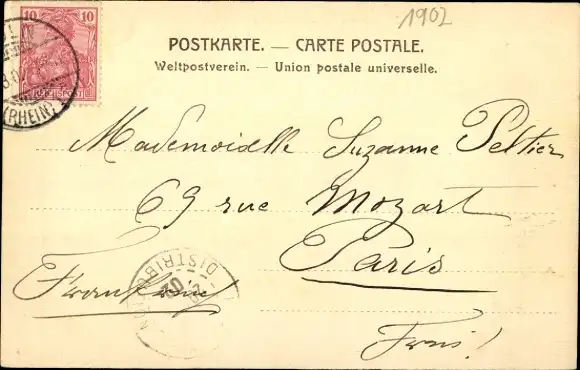 1902
10
REICHSPOST
(RHEIN)
POSTKARTE. — CARTE POSTALE.
Weltpostverein. — Union postale universelle.
Mademoiselle Suzanne Peltier
69 rue Mozart
Paris
DISTRIBU
02